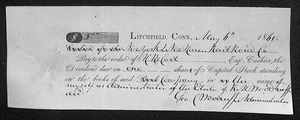 $3 LITCHFIELD, CONN. May 6th 1861.
New York & New Haven Rail Road Co
Pay to the order of Esq. Cashier, the
Dividend due on one share of Capital Stock standing
on the books of said Company in the name of
myself as Administrator of the Estate of
Geo C Woodruff Administrator